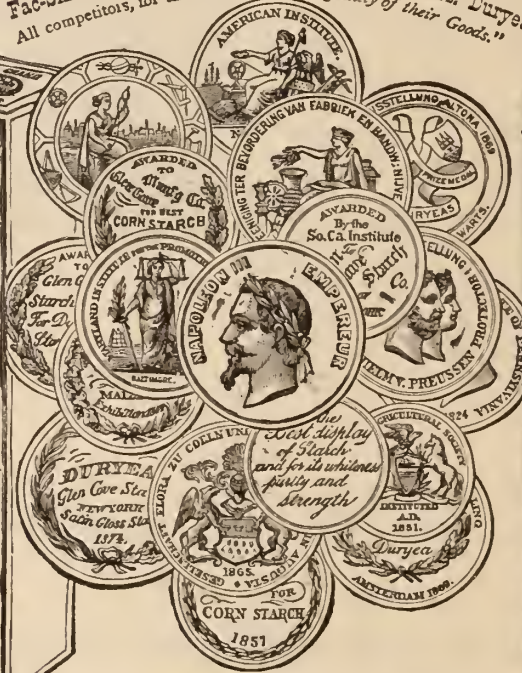 Fac-Sim
Duryea
All competitors, for
of their Goods."
AMERICAN INSTITUTE.
ENIGING TER BEVORDERING VAN FABRIEN EN HANDW: NIJVE
SSTELLUNG ALTONA 1869
PRIZE MEDAL
RYEAS
WARTS.
AWARDED
TO
Glen Cove Manfg Co.
FOR BEST
CORN STARCH
AWARDED
By the
So. Ca. Institute
To
Cove Starch
Co.
AWAR
TO
Glen C
Starch
For
MARYLAND INSTITUTE FOR THE PROMOTIO
BALTIMORE.
NAPOLEON III EMPEREUR
ELLUNG: BOLTZ
HELM V. PREUSSEN
CE OF
NSYLVANIA
1824
the
Best display
of Starch
and for its whiteness
purity and
strength
GRICULTURAL SOCIETY
INSTITUTED
A.D.
1851.
Duryea
AMSTERDAM 1869.
DURYEA
Glen Cove Star
NEW YORK
Satin Gloss Sta
1874.
GESELLSCHAFT FLORA ZU COELN UN
IN AUGUSTA
1865.
FOR
CORN STARCH
1857